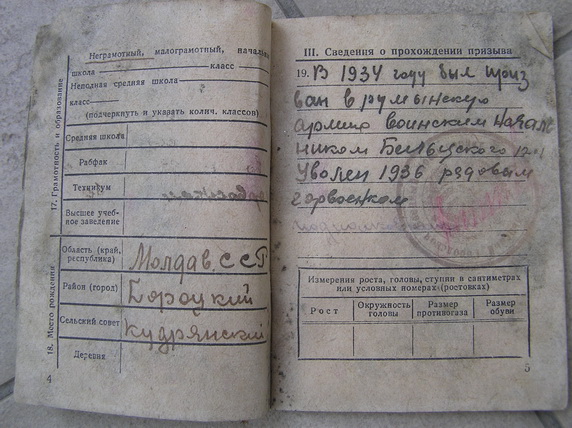 Неграмотный, малограмотный, началь
школа класс
Неполная средняя школа
класс
(подчеркнуть и указать колич. классов)
17. Грамотность и образование
Средняя школа
Рабфак
Техникум
Высшее учеб-
ное заведение
18. Место рождения
Область (край,
республика)
Молдав. ССР
Район (город)
Сельский совет
Кудрянский
Деревня
4
III. Сведения о прохождении призыва
19. В 1934 году был приз
ван в румынскую
армию воинским началь
ником
Уволен 1936 рядовым
горвоенком
Измерения роста, головы, ступни в сантиметрах
или условных номерах (ростовках)
Рост
Окружность
головы
Размер
противогаза
Размер
обуви
5